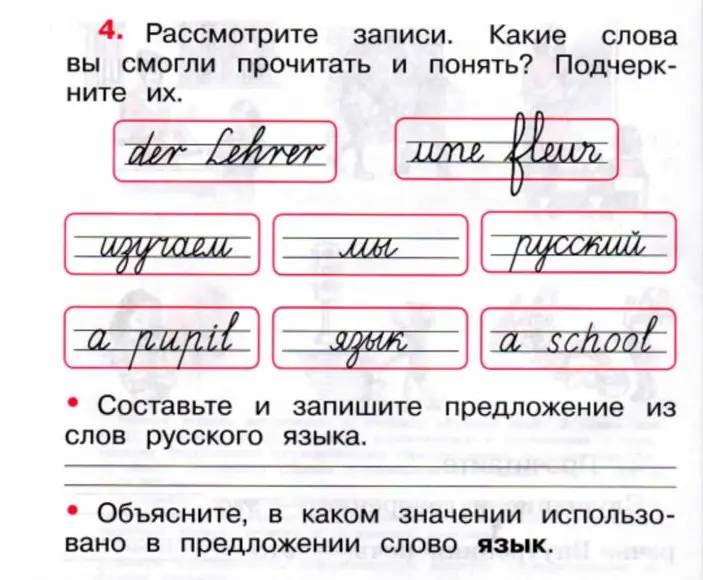 4. Рассмотрите записи. Какие слова
вы смогли прочитать и понять? Подчерк-
ните их.
der Lehrer une fleur
изучаем мы русский
a pupil язык a school
• Составьте и запишите предложение из
слов русского языка.
• Объясните, в каком значении использо-
вано в предложении слово язык.